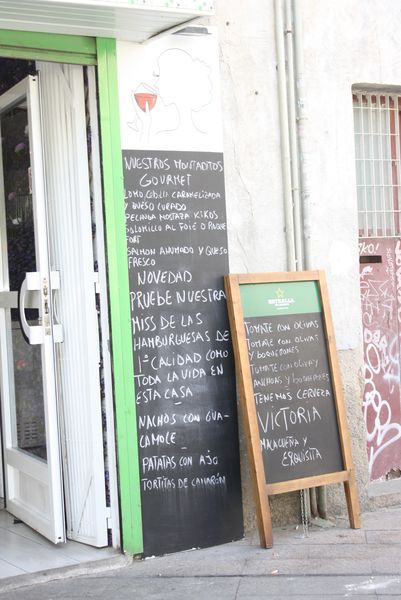 NUESTROS MONTADITOS
GOURMET
LOMO, CEBOLLA CARAMELIZADA
Y QUESO CURADO
PECHUGA MOSTAZA KIKOS
SOLOMILLO AL FOIE O ROQUE
FORT
SALMON AHUMADO Y QUESO
FRESCO
NOVEDAD
PRUEBE NUESTRA
MISS DE LAS
HAMBURGUESAS DE
1ª CALIDAD COMO
TODA LA VIDA EN
ESTA CASA
NACHOS CON GUA
CAMOLE
PATATAS CON AJO
TORTITAS DE CAMARÓN
ESTRELLA
TOMATE CON OLIVAS
TOMATE CON OLIVAS
Y BOQUERONES
TOMATE CON OLIVAS
ANCHOAS Y BOQUERONES
TENEMOS CERVEZA
VICTORIA
MALAGUEÑA Y
EXQUISITA